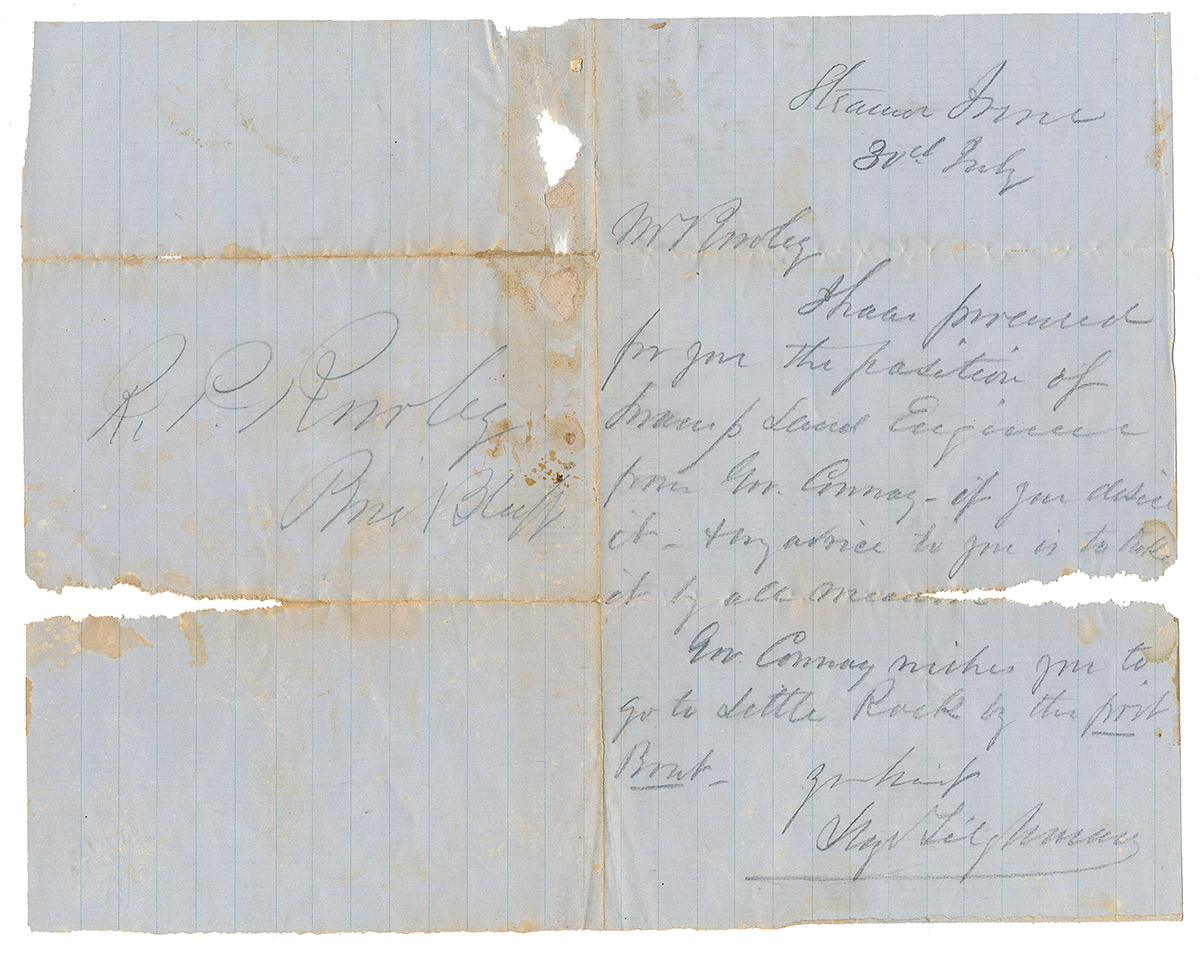 Steamer Irene
30th July
Mr Rowley
I have procured
for you the position of
Swamp Land Engineer
from Gov. Conway - if you desire
it - & my advice to you is to take
it by all means
Gov. Conway wishes you to
go to Little Rock by the first
Boat -
Yr friend
Lloyd Tilghman
R. P. Rowley
Pine Bluff